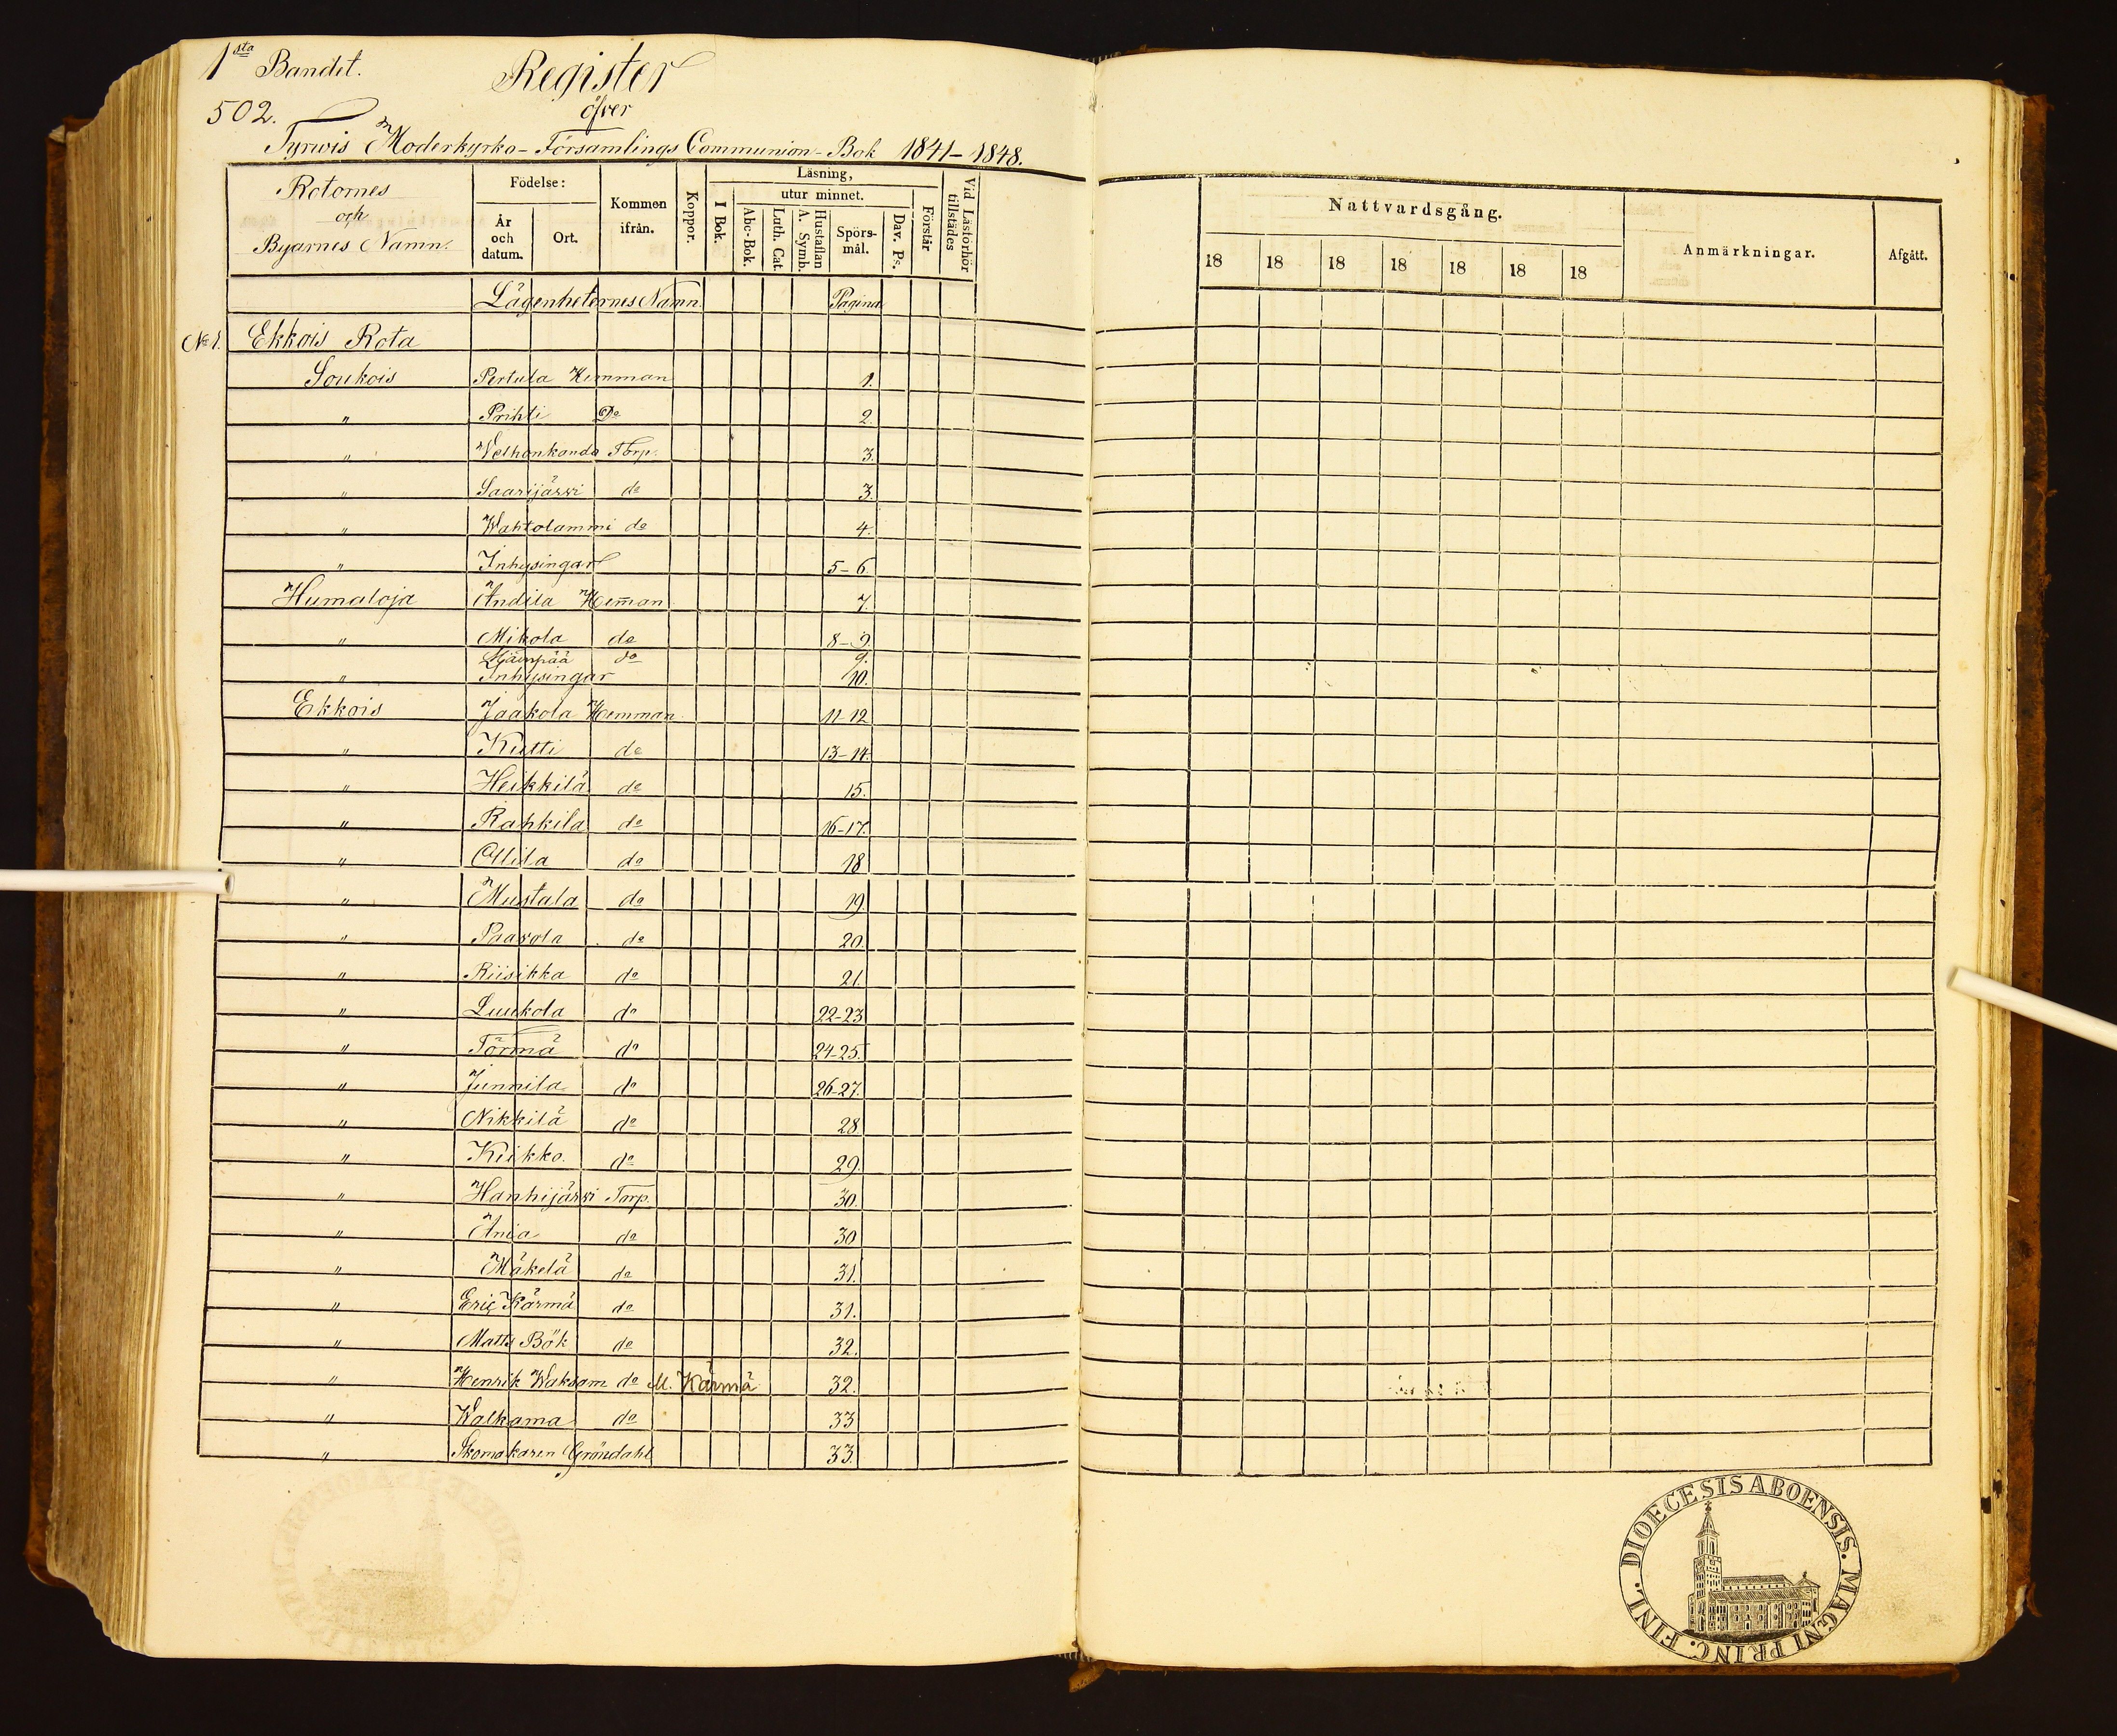 1sta Bandet.
Register
502.
öfver
Tyrwis Moderkyrko-Församlings Communion-Bok 1841-1848.
Rotornes och Byarnes Namn.
Födelse:
År och datum.
Ort.
Kommen ifrån.
Koppor.
Läsning,
I Bok.
utur minnet.
Abc-Bok.
Luth. Cat.
A. Symb.
Hustaflan
Spörs-mål.
Dav. Ps.
Förstår
Vid Läsförhör tillstädes
Nattvardsgång.
18 18 18 18 18 18 18
Anmärkningar.
Afgått.
Lägenheternes Namn. Pagina
No 1. Ekkois Rota
Soukois Pertula Hemman 1.
" Prihti Do 2.
" Welhonkanda Torp. 3.
" Saarijärwi do 3.
" Wahtolammi do 4.
" Inhysingar 5-6
Humaloja Andila Hem̄an 7.
" Mikola do 8-9.
Kämpää do 9.
" Inhysingar 10.
Ekkois Jaakola Hemman 11-12
" Kutti do 13-14.
" Heikkilä do 15.
" Rahkila do 16-17.
" Ollila do 18
" Mustala do 19
" Paavola do 20.
" Riisikka do 21.
" Luukola do 22-23
" Törmä do 24-25.
" Junnila do 26-27.
" Nikkilä do 28
" Kiikko. do 29.
" Hanhijärwi Torp. 30.
" Ania do 30
" Mäkelä do 31.
" Eric Kärmä do 31.
" Matts Bök do 32.
" Henrik Waksam do M. Kärmä 32.
" Walkama do 33
" Skomakaren Gröndahl 33.
DIOECESIS ABOENSIS. MAGNI PRINC. FINL.